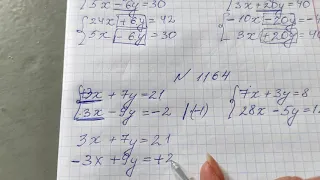 5x - 6y = 30
24x + 6y = 42
5x - 6y = 30
5x + 20y = 40
-10x - 20y =
3x + 20y = 40
N 1164
3x + 7y = 21
3x - 9y = -2 |(-1)
7x + 3y = 8
28x - 5y = 1
3x + 7y = 21
-3x + 9y = +2